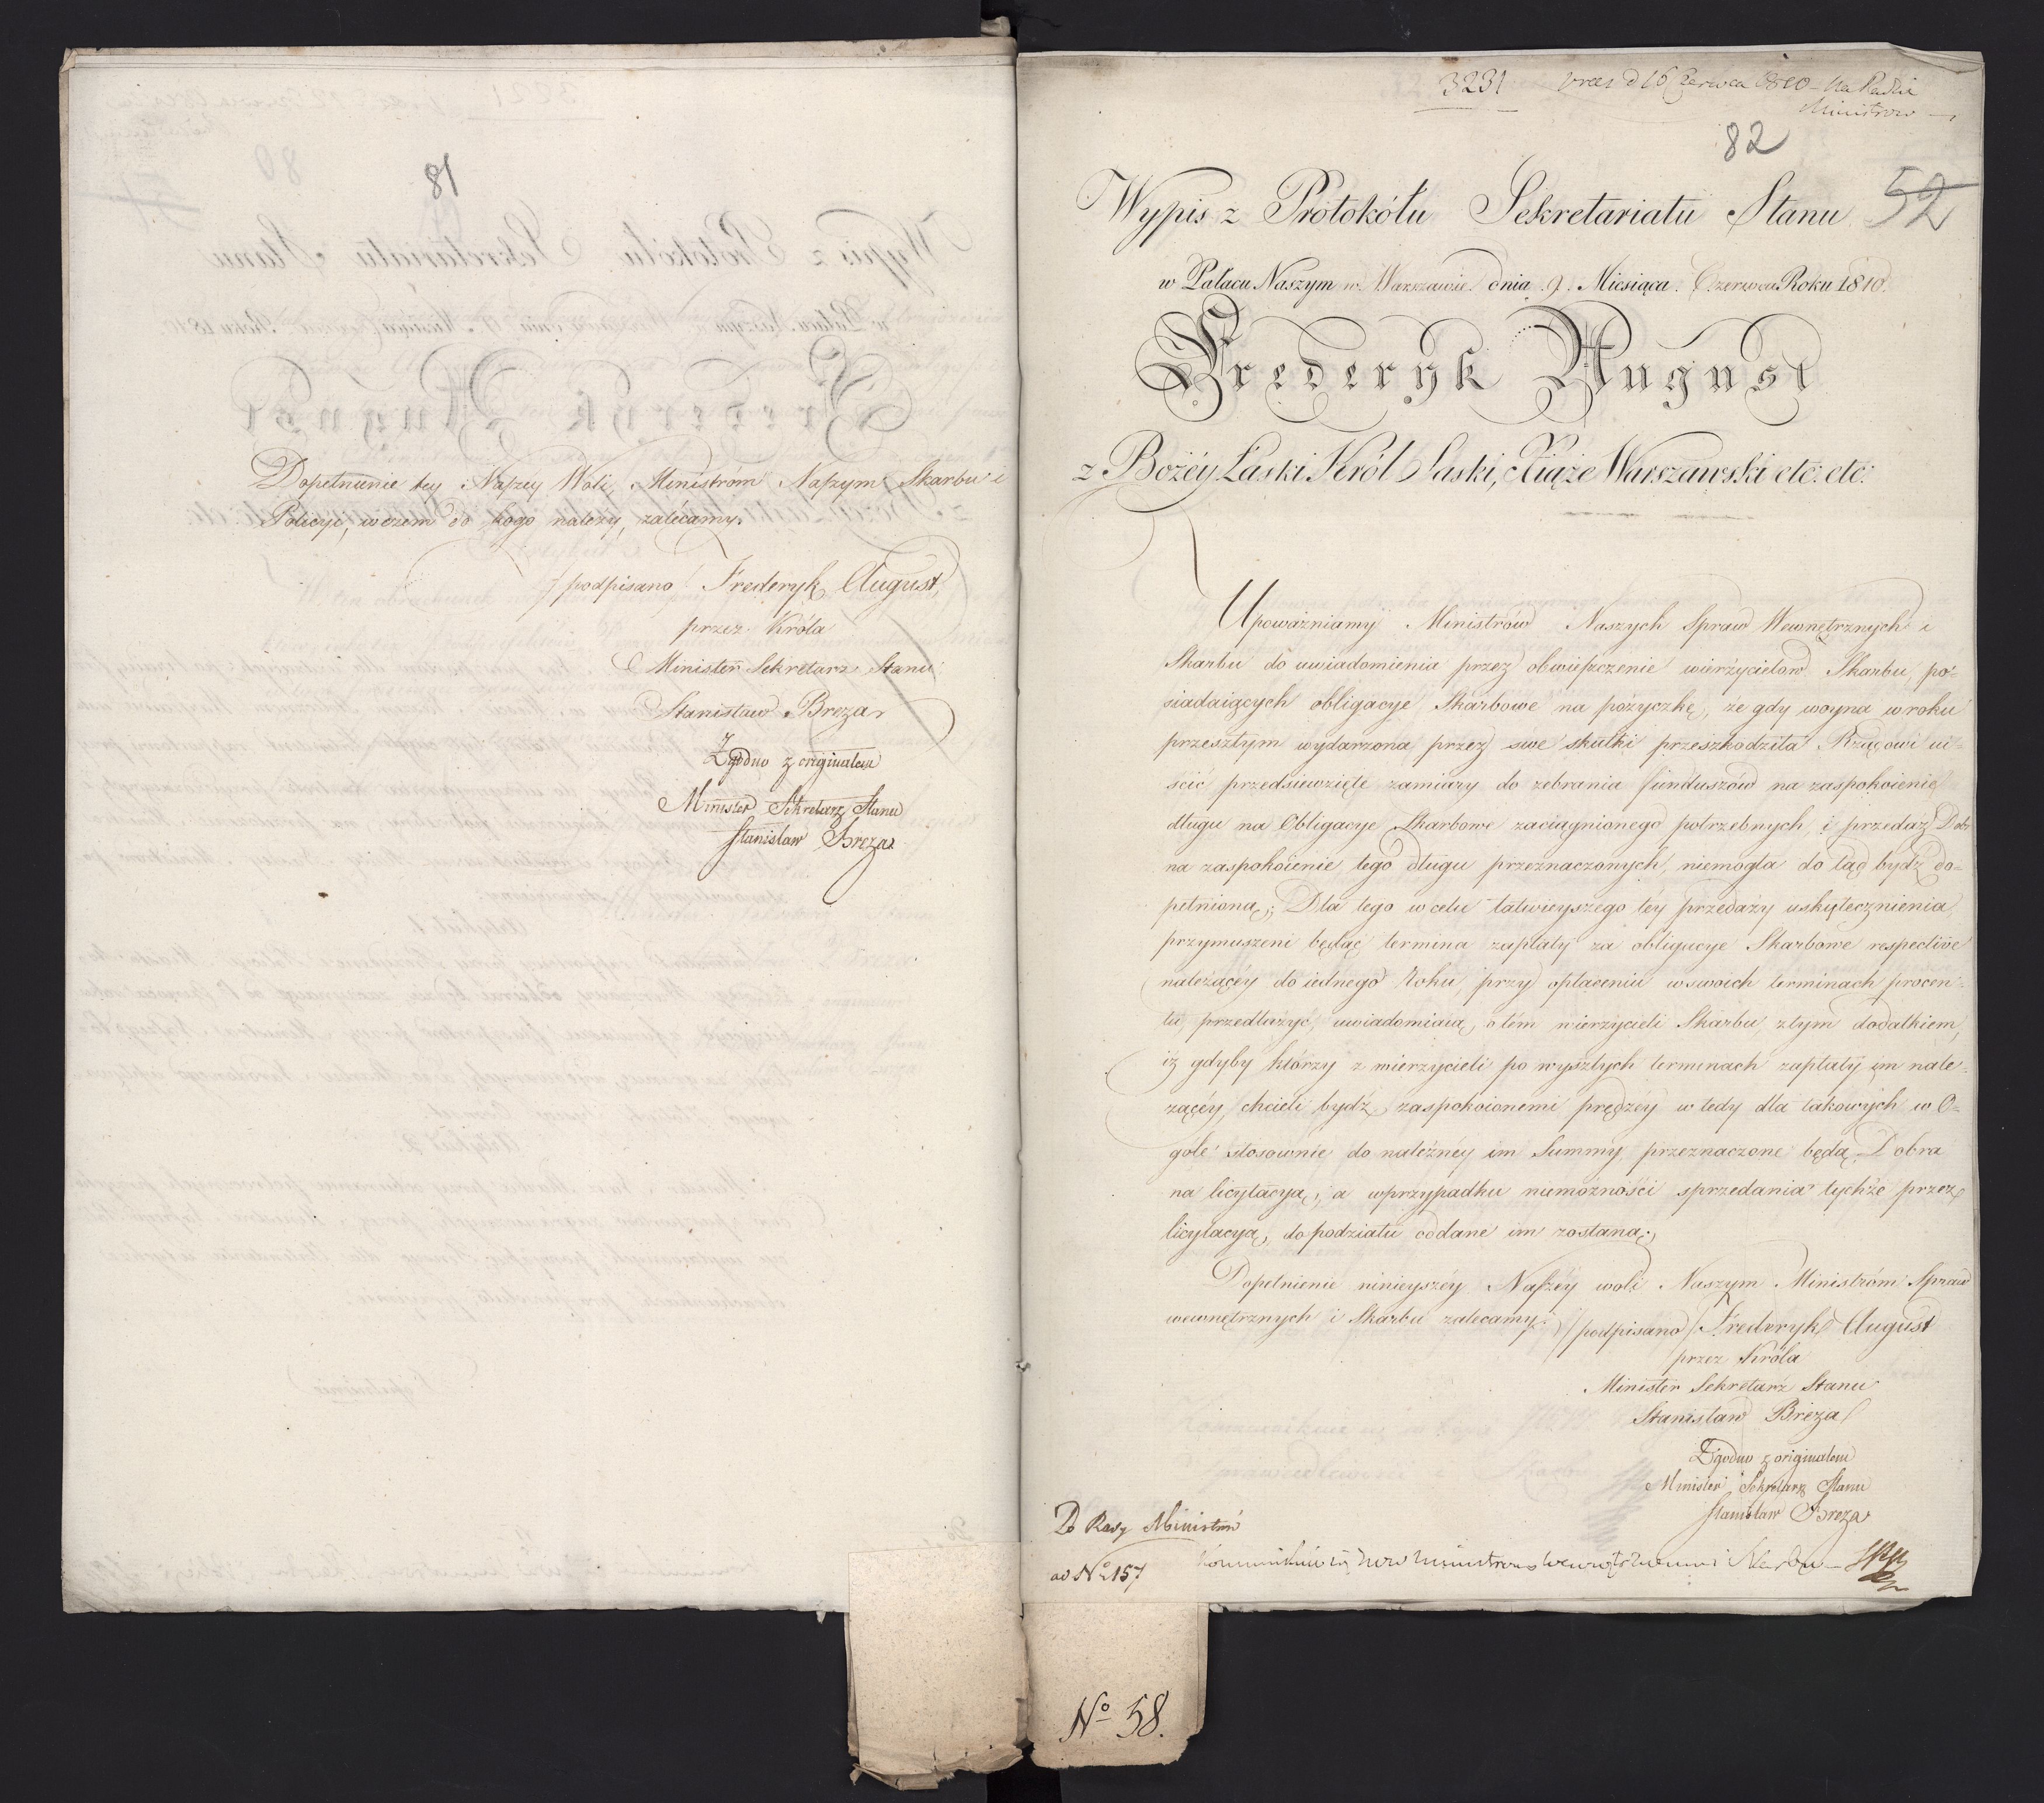 81
Dopełnienie tey Naszey Woli, Ministróm Naszym Skarbu i
Policyi, w czem do kogo należy, zalecamy.
/podpisano/ Frederyk August,
przez Króla
Minister Sekretarz Stanu
Stanisław Breza
Zgodno z originałem
Minister Sekretarz Stanu
Stanisław Breza
3231 praes d 16 Czerwca 1810 – Na Radzie
Ministrów
82
Wypis z Protokółu Sekretariatu Stanu 52
w Pałacu Naszym w Warszawie dnia 9. Miesiąca Czerwca Roku 1810.
Frederyk August
z Bożéy Łaski Król Saski, Xiąże Warszawski etc: etc:
Upoważniamy Ministrów Naszych Spraw Wewnętrznych i
Skarbu do uwiadomienia przez obwieszczenie wierzycielow Skarbu, po-
siadaiących obligacye Skarbowe na pożyczkę, że gdy woyna w roku
przeszłym wydarzona przez swe skutki przeszkodziła Rządowi ui-
ścić przedsiewzięte zamiary do zebrania funduszów na zaspokoienie
długu na Obligacye Skarbowe zaciągnionego potrzebnych, i przedaż Dobr
na zaspokoienie tego długu przeznaczonych, niemogła do tąd bydź do-
pełnioną; Dla tego w celu łatwieyszego téy przedaży uskutecznienia
przymuszeni będąc termina zapłaty za obligacye Skarbowe respective
należącéy do iednego Roku, przy opłaceniu w swoich terminach procen-
tu, przedłużyć, uwiadomiaią, o tém wierzycieli Skarbu z tym dodatkiem,
iż gdyby którzy z wierzycieli po wyszłych terminach zapłaty im nale-
żącéy, chcieli bydź zaspokoionemi prędzéy w tedy dla takowych w O-
góle stosownie do należnéy im Summy, przeznaczone będą Dobra
na licytacyą, a w przypadku niemożności sprzedania tychże przez
licytacyą, do podziału oddane im zostaną.
Dopełnienie ninieyszéy Naszéy woli Naszym Ministróm Spraw
wewnętrznych i Skarbu zalecamy. /podpisano/ Frederyk August
przez Króla
Minister Sekretarz Stanu
Stanisław Breza
Zgodno z originałem
Minister Sekretarz Stanu
Stanisław Breza
Do Rady Ministrów
ad No 157 Kommunikuie się Ministrom Wewnętrznemu i Skarbu –
No 58.